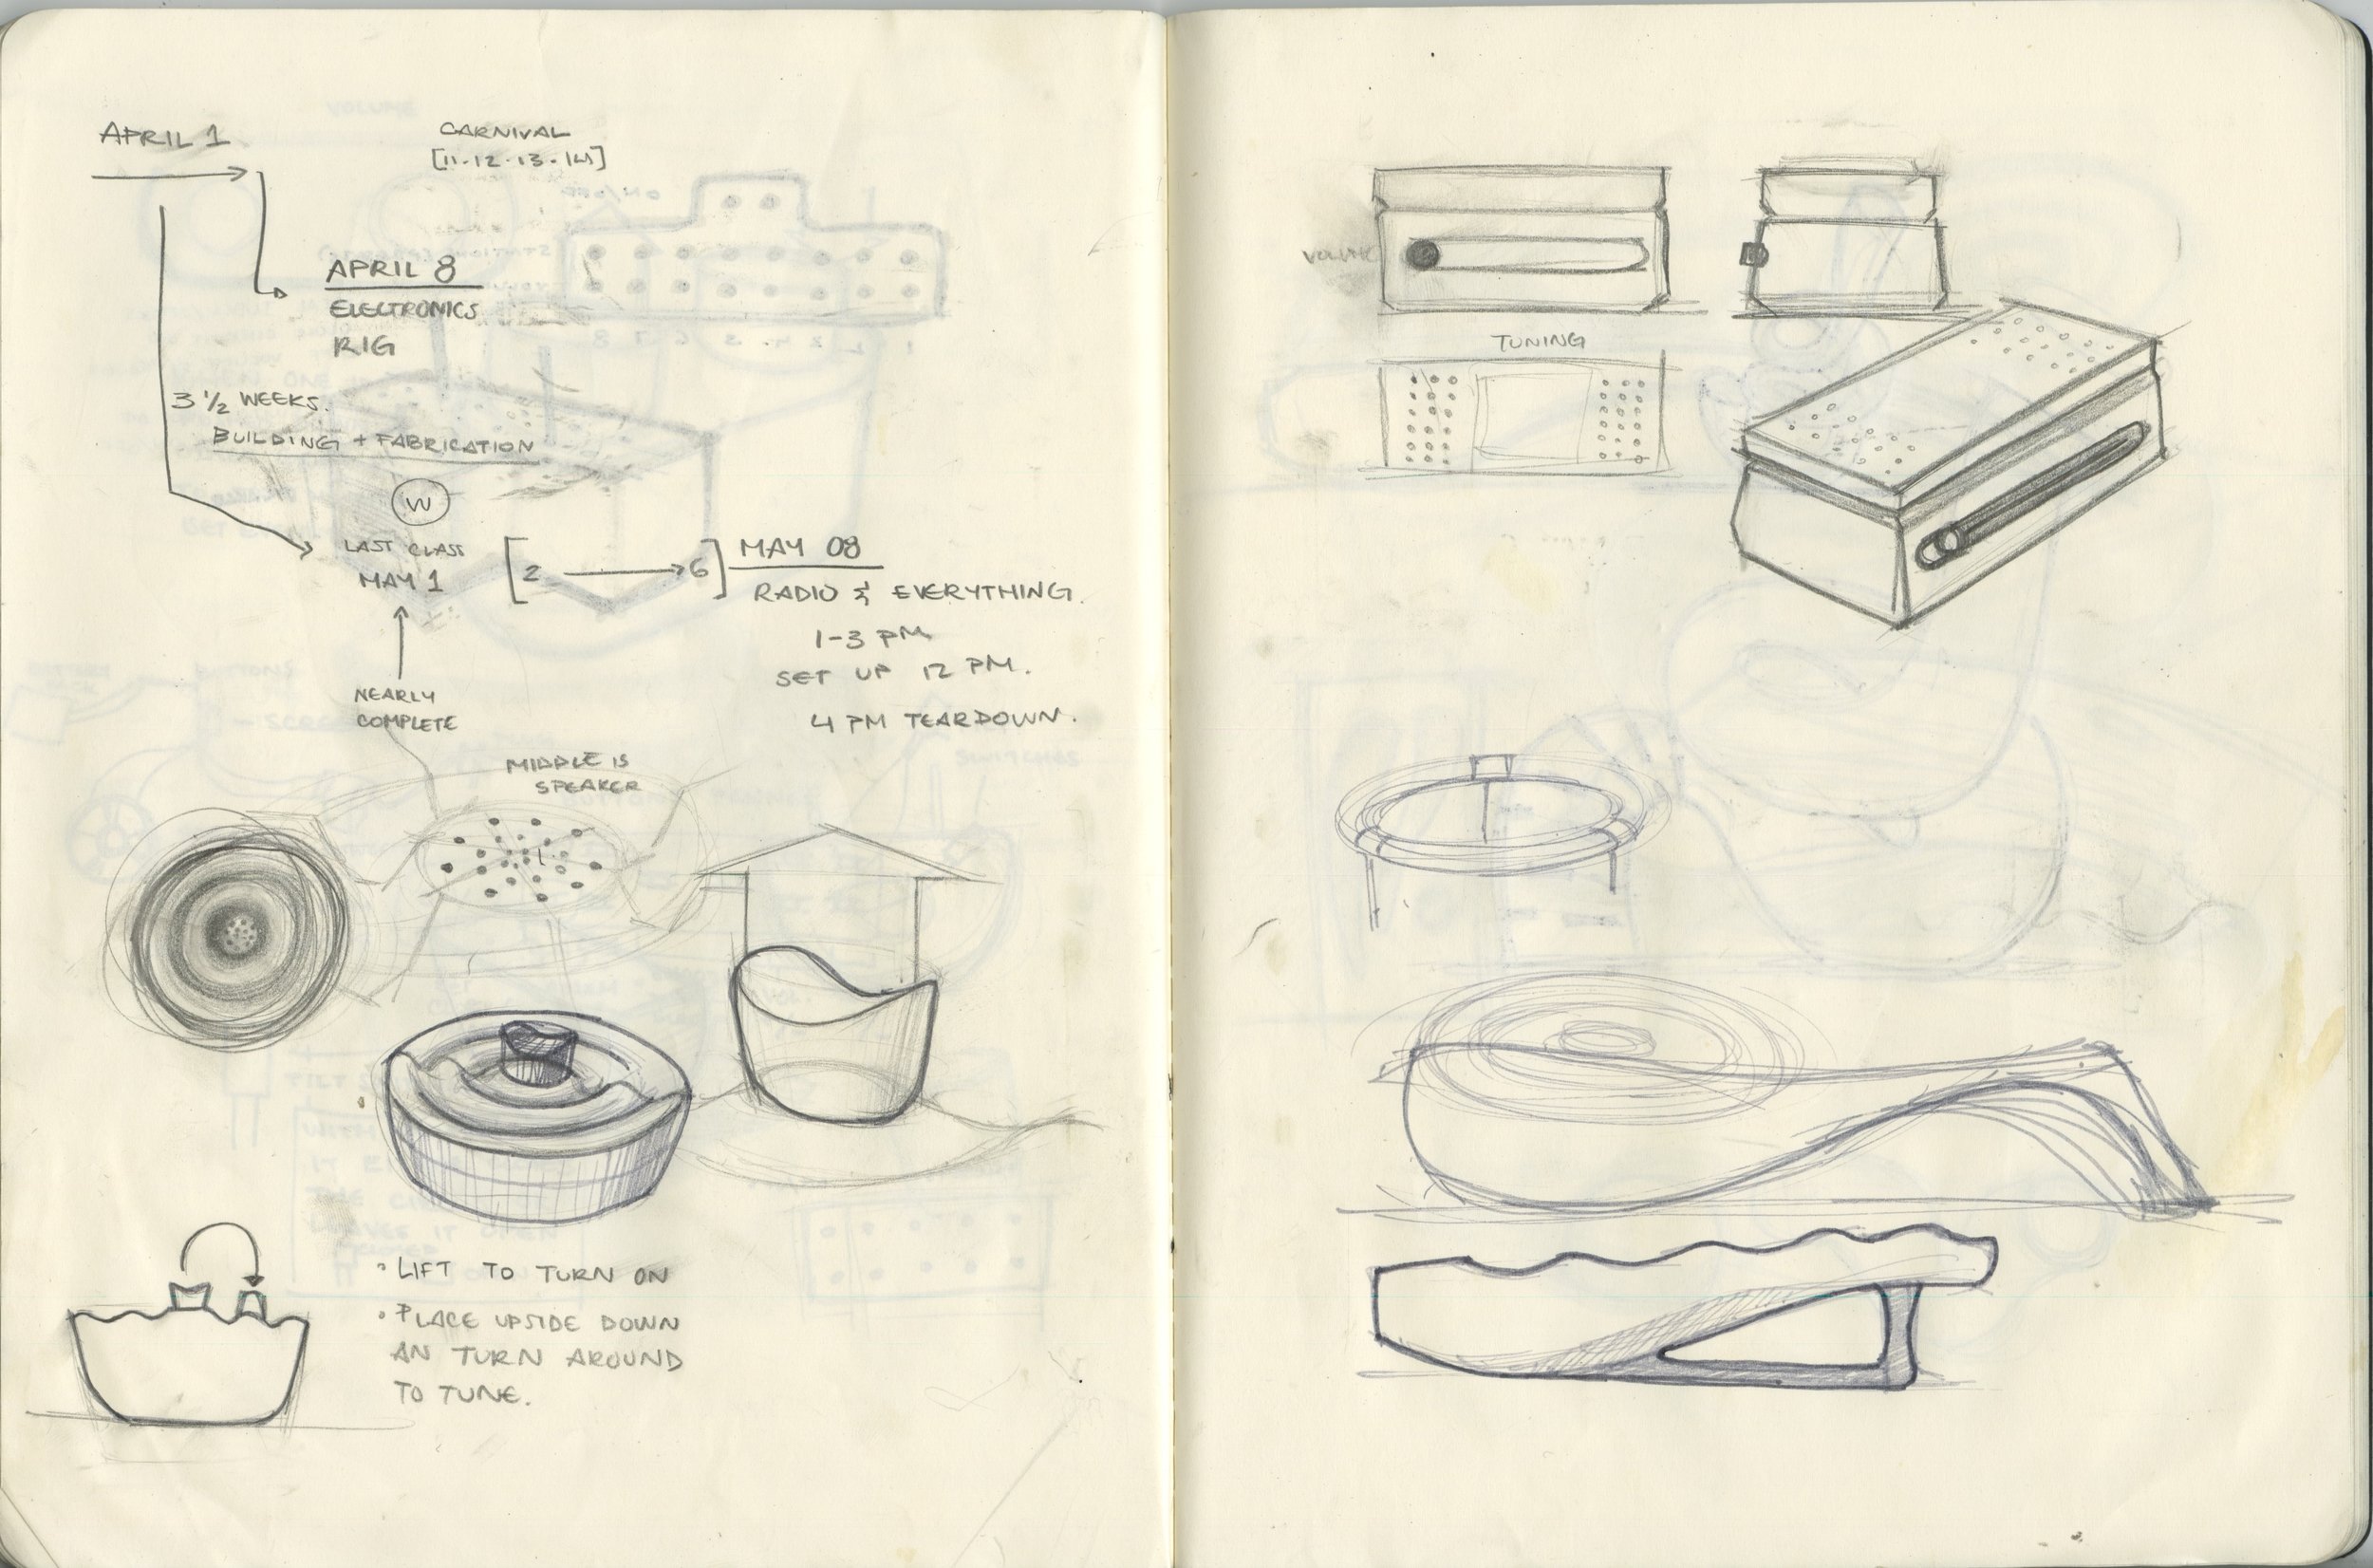 APRIL 1
CARNIVAL
[11.12.13.14]
APRIL 8
ELECTRONICS
RIG
3 1/2 WEEKS.
BUILDING + FABRICATION
W
LAST CLASS
MAY 1
[2 → 6]
MAY 08
RADIO & EVERYTHING.
1-3 PM
SET UP 12 PM.
4 PM TEARDOWN.
NEARLY
COMPLETE
MIDDLE IS
SPEAKER
• LIFT TO TURN ON
• PLACE UPSIDE DOWN
AN TURN AROUND
TO TUNE.
VOLUME
TUNING